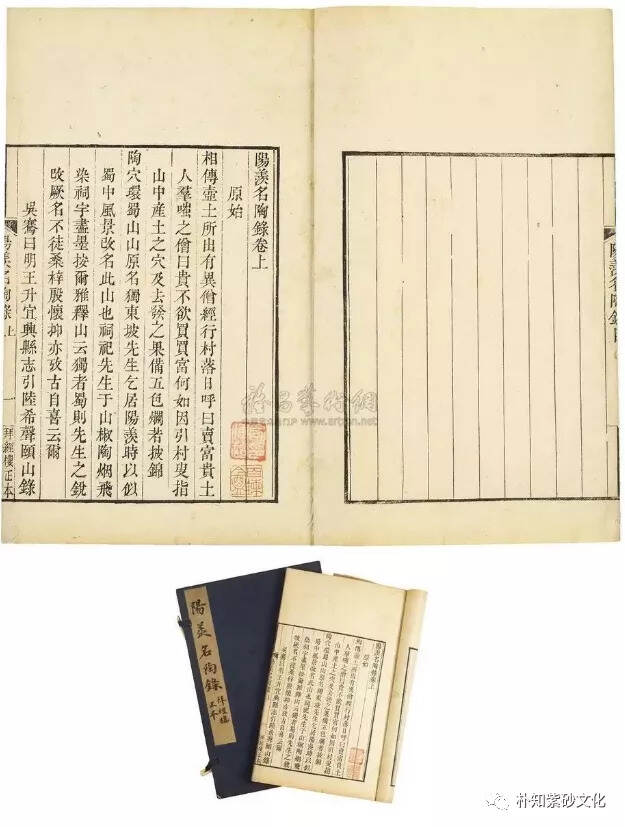 陽羨名陶錄
陽羨名陶錄卷上
原始
相傳壺土所由有異僧經行村落日呼曰賣富貴土
人羣嗤之僧曰貴不欲買買富何如因引村叟指
山中産土之穴及去發之果備五色爛若披錦
陶穴環蜀山山原名獨東坡先生乞居陽羨時以似
蜀中風景改名此山也祠祀先生于山椒陶烟飛
染祠宇盡墨按爾雅釋山云獨者蜀則先生之銳
攺厥名不徒桑梓殷懷抑亦攷古自喜云爾
吳騫曰明王升宜興縣志引陸希聲頤山錄
陽羨名陶錄 上 一 拜經樓正本
www.artron.net
陽羨名陶錄
拜經樓
正本
陽羨名陶錄卷上
原始
朴知紫砂文化